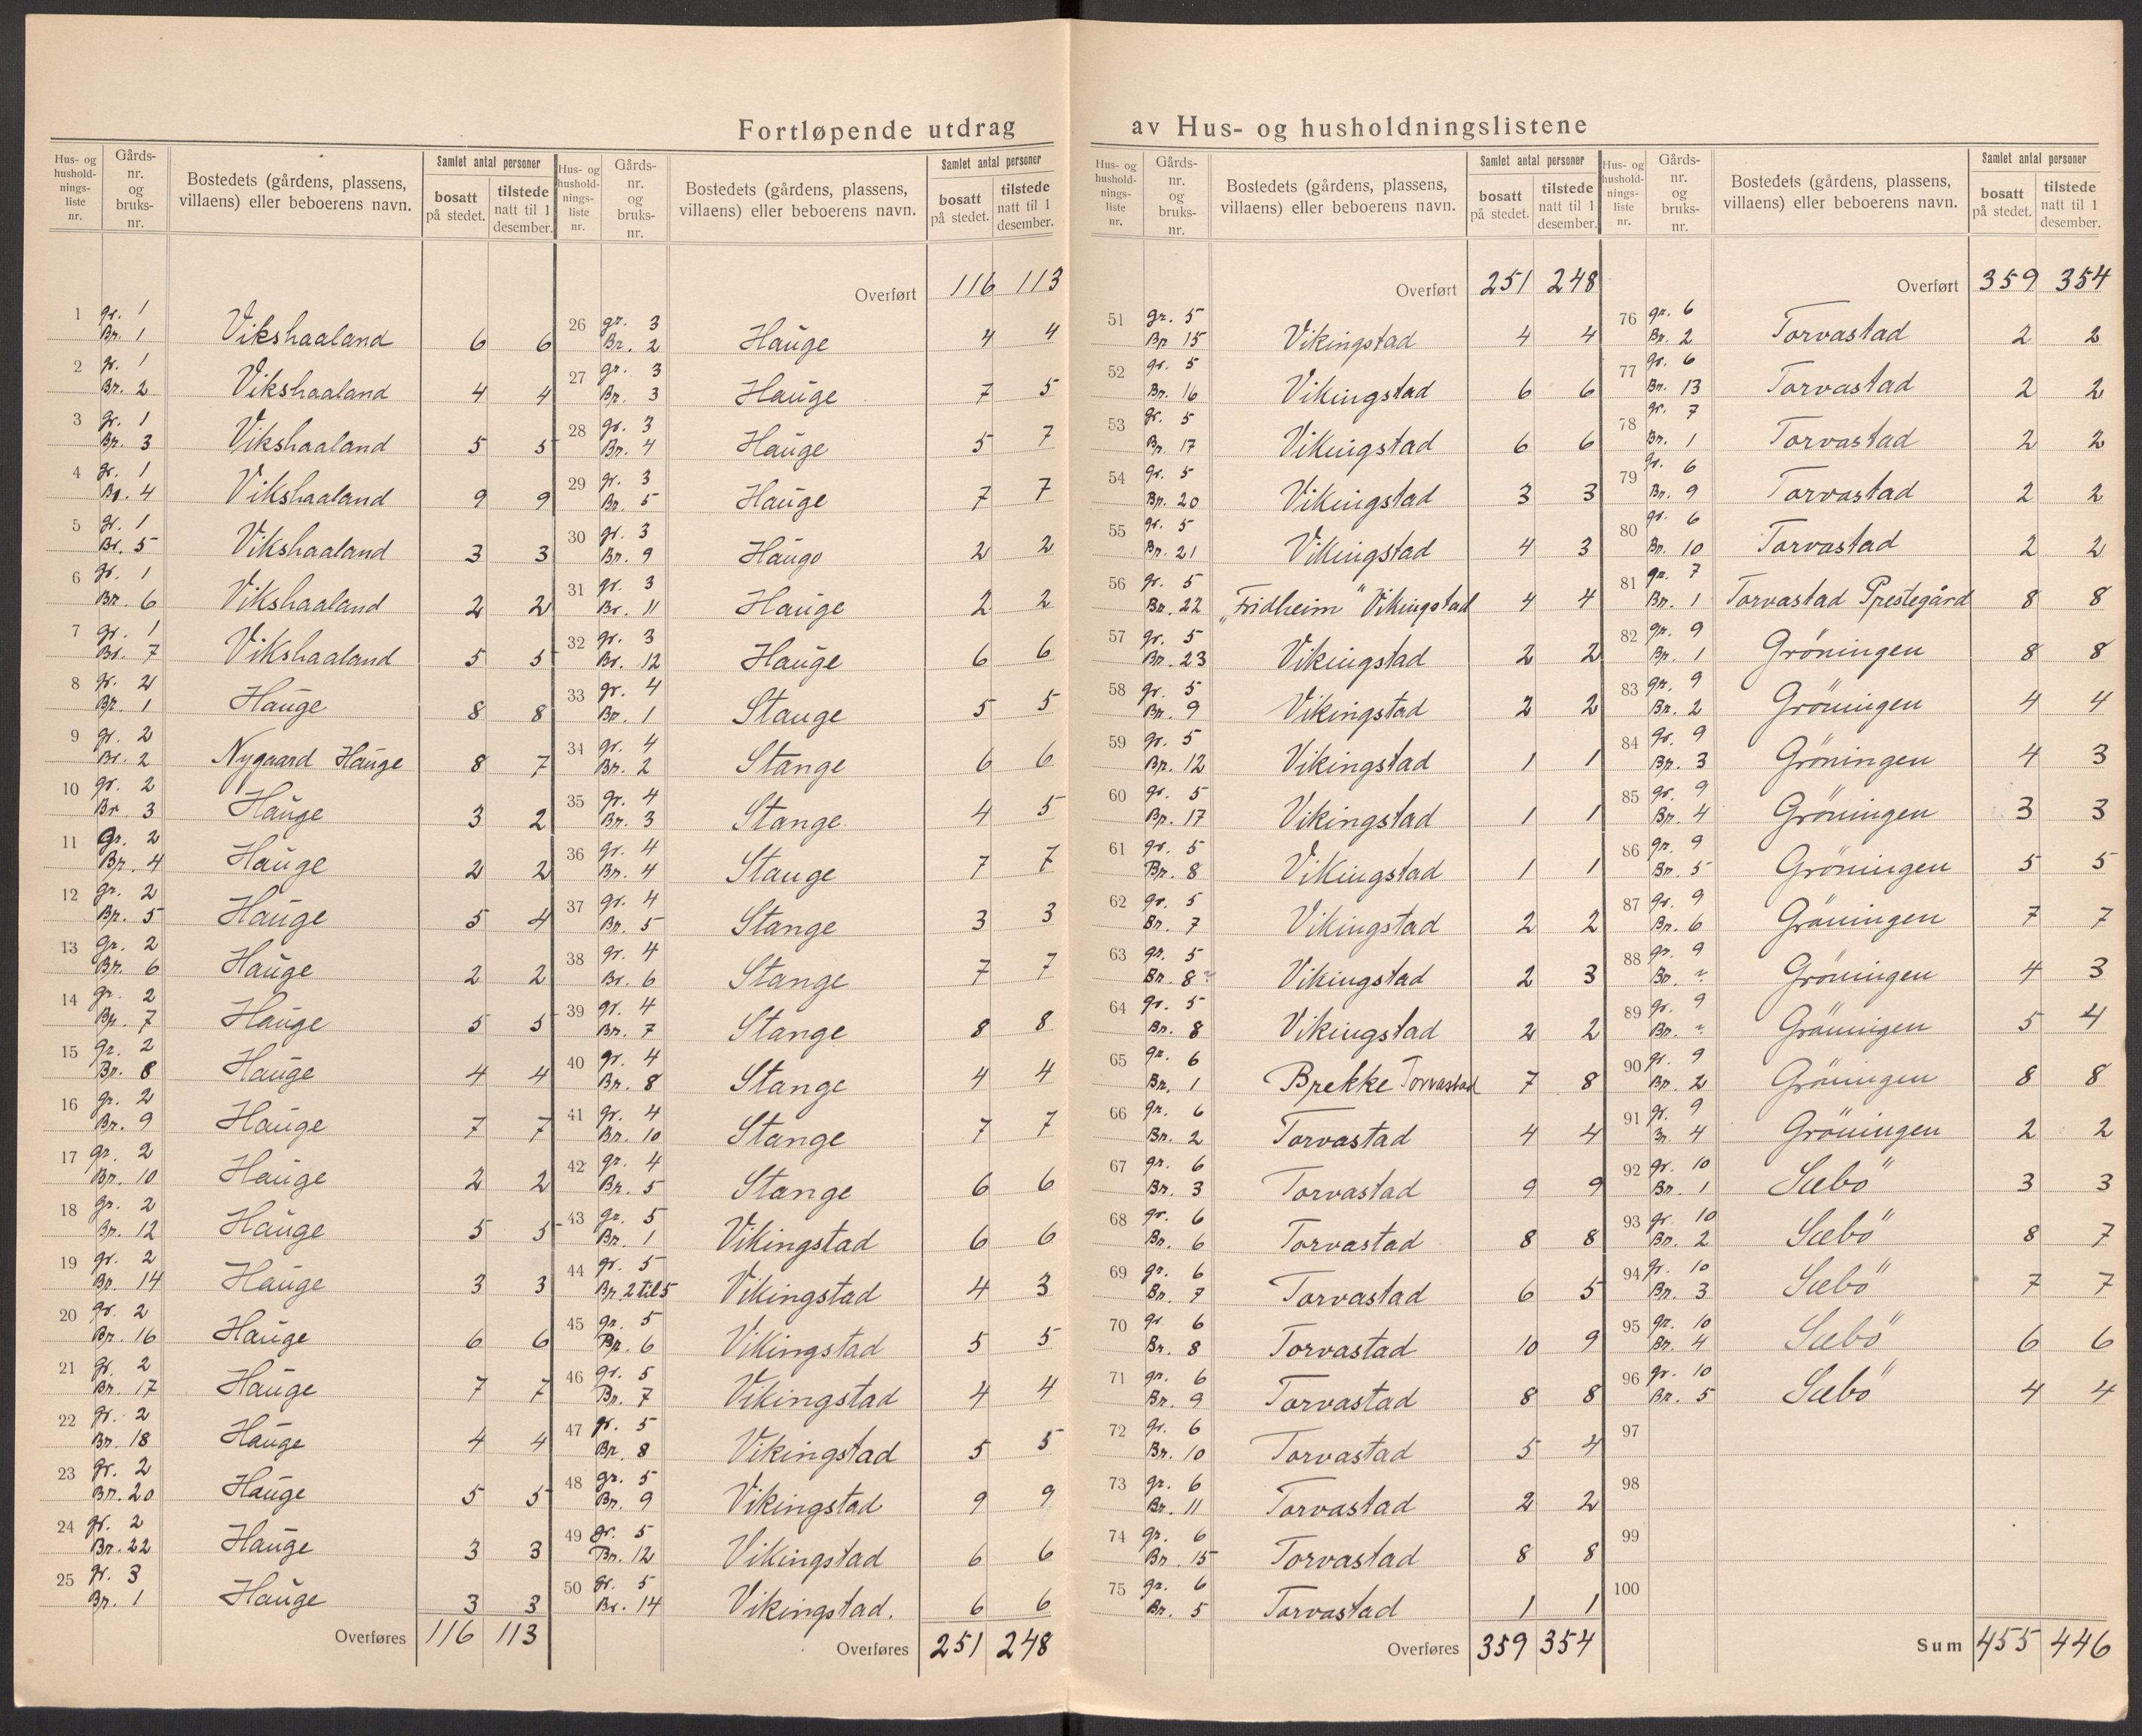 Fortløpende utdrag av Hus- og husholdningslistene
Hus- og hushold- nings- liste nr. | Gårds- nr. og bruks- nr. | Bostedets (gårdens, plassens, villaens) eller beboerens navn. | Samlet antal personer | bosatt på stedet. | tilstede natt til 1 desember.
1 gr. 1 Br. 1 Vikshaaland 6 6
2 gr. 1 Br. 2 Vikshaaland 4 4
3 gr. 1 Br. 3 Vikshaaland 5 5
4 gr. 1 Br. 4 Vikshaaland 9 9
5 gr. 1 Br. 5 Vikshaaland 3 3
6 gr. 1 Br. 6 Vikshaaland 2 2
7 gr. 1 Br. 7 Vikshaaland 5 5
8 gr. 2 Br. 1 Hauge 8 8
9 gr. 2 Br. 2 Nygaard Hauge 8 7
10 gr. 2 Br. 3 Hauge 3 2
11 gr. 2 Br. 4 Hauge 2 2
12 gr. 2 Br. 5 Hauge 5 4
13 gr. 2 Br. 6 Hauge 2 2
14 gr. 2 Br. 7 Hauge 5 5
15 gr. 2 Br. 8 Hauge 4 4
16 gr. 2 Br. 9 Hauge 7 7
17 gr. 2 Br. 10 Hauge 2 2
18 gr. 2 Br. 12 Hauge 5 5
19 gr. 2 Br. 14 Hauge 3 3
20 gr. 2 Br. 16 Hauge 6 6
21 gr. 2 Br. 17 Hauge 7 7
22 gr. 2 Br. 18 Hauge 4 4
23 gr. 2 Br. 20 Hauge 5 5
24 gr. 2 Br. 22 Hauge 3 3
25 gr. 3 Br. 1 Hauge 3 3
Overføres 116 113
Hus- og hushold- nings- liste nr. | Gårds- nr. og bruks- nr. | Bostedets (gårdens, plassens, villaens) eller beboerens navn. | Samlet antal personer | bosatt på stedet. | tilstede natt til 1 desember.
Overført 116 113
26 gr. 3 Br. 2 Hauge 4 4
27 gr. 3 Br. 3 Hauge 7 5
28 gr. 3 Br. 4 Hauge 5 7
29 gr. 3 Br. 5 Hauge 7 7
30 gr. 3 Br. 9 Hauge 2 2
31 gr. 3 Br. 11 Hauge 2 2
32 gr. 3 Br. 12 Hauge 6 6
33 gr. 4 Br. 1 Stange 5 5
34 gr. 4 Br. 2 Stange 6 6
35 gr. 4 Br. 3 Stange 4 5
36 gr. 4 Br. 4 Stange 7 7
37 gr. 4 Br. 5 Stange 3 3
38 gr. 4 Br. 6 Stange 7 7
39 gr. 4 Br. 7 Stange 8 8
40 gr. 4 Br. 8 Stange 4 4
41 gr. 4 Br. 10 Stange 7 7
42 gr. 4 Br. 5 Stange 6 6
43 gr. 5 Br. 1 Vikingstad 6 6
44 gr. 5 Br. 2 til 5 Vikingstad 4 3
45 gr. 5 Br. 6 Vikingstad 5 5
46 gr. 5 Br. 7 Vikingstad 4 4
47 gr. 5 Br. 8 Vikingstad 5 5
48 gr. 5 Br. 9 Vikingstad 9 9
49 gr. 5 Br. 12 Vikingstad 6 6
50 gr. 5 Br. 14 Vikingstad. 6 6
Overføres 251 248
Hus- og hushold- nings- liste nr. | Gårds- nr. og bruks- nr. | Bostedets (gårdens, plassens, villaens) eller beboerens navn. | Samlet antal personer | bosatt på stedet. | tilstede natt til 1 desember.
Overført 251 248
51 gr. 5 Br 15 Vikingstad 4 4
52 gr. 5 Br. 16 Vikingstad 6 6
53 gr. 5 Br. 17 Vikingstad 6 6
54 gr. 5 Br. 20 Vikingstad 3 3
55 gr. 5 Br. 21 Vikingstad 4 3
56 gr. 5 Br. 22 „Fridheim" Vikingstad 4 4
57 gr. 5 Br. 23 Vikingstad 2 2
58 gr. 5 Br. 9 Vikingstad 2 2
59 gr. 5 Br. 12 Vikingstad 1 1
60 gr. 5 Br. 17 Vikingstad 1 1
61 gr. 5 Br. 8 Vikingstad 1 1
62 gr. 5 Br. 7 Vikingstad 2 2
63 gr. 5 Br. 8 Vikingstad 2 3
64 gr. 5 Br. 8 Vikingstad 2 2
65 gr. 6 Br. 1 Brekke Torvastad 7 8
66 gr. 6 Br. 2 Torvastad 4 4
67 gr. 6 Br. 3 Torvastad 9 9
68 gr. 6 Br. 6 Torvastad 8 8
69 gr. 6 Br. 7 Torvastad 6 5
70 gr 6 Br. 8 Torvastad 10 9
71 gr. 6 Br. 9 Torvastad 8 8
72 gr. 6 Br. 10 Torvastad 5 4
73 gr. 6 Br. 11 Torvastad 2 2
74 gr. 6 Br. 15 Torvastad 8 8
75 gr. 6 Br. 5 Torvastad 1 1
Overføres 359 354
Hus- og hushold- nings- liste nr. | Gårds- nr. og bruks- nr. | Bostedets (gårdens, plassens, villaens) eller beboerens navn. | Samlet antal personer | bosatt på stedet. | tilstede natt til 1 desember.
Overført 359 354
76 gr. 6 Br. 2 Torvastad 2 2
77 gr. 6 Br. 13 Torvastad 2 2
78 gr. 7 Br. 1 Torvastad 2 2
79 gr. 6 Br. 9 Torvastad 2 2
80 gr. 6 Br. 10 Torvastad 2 2
81 gr. 7 Br. 1 Torvastad Prestegård 8 8
82 gr. 9 Br. 1 Gröningen 8 8
83 gr. 9 Br. 2 Gröningen 4 4
84 gr. 9 Br. 3 Gröningen 4 3
85 gr. 9 Br. 4 Gröningen 3 3
86 gr. 9 Br. 5 Gröningen 5 5
87 gr. 9 Br. 6 Gröningen 7 7
88 gr. 9 Br. Gröningen 4 3
89 gr. 9 Br. Gröningen 5 4
90 gr. 9 Br. 2 Gröningen 8 8
91 gr. 9 Br. 4 Gröningen 2 2
92 gr. 10 Br. 1 Sæbö 3 3
93 gr. 10 Br. 2 Sæbö 8 7
94 gr. 10 Br. 3 Sæbö 7 7
95 gr. 10 Br. 4 Sæbö 6 6
96 gr. 10 Br. 5 Sæbö 4 4
97
98
99
100
Sum 455 446